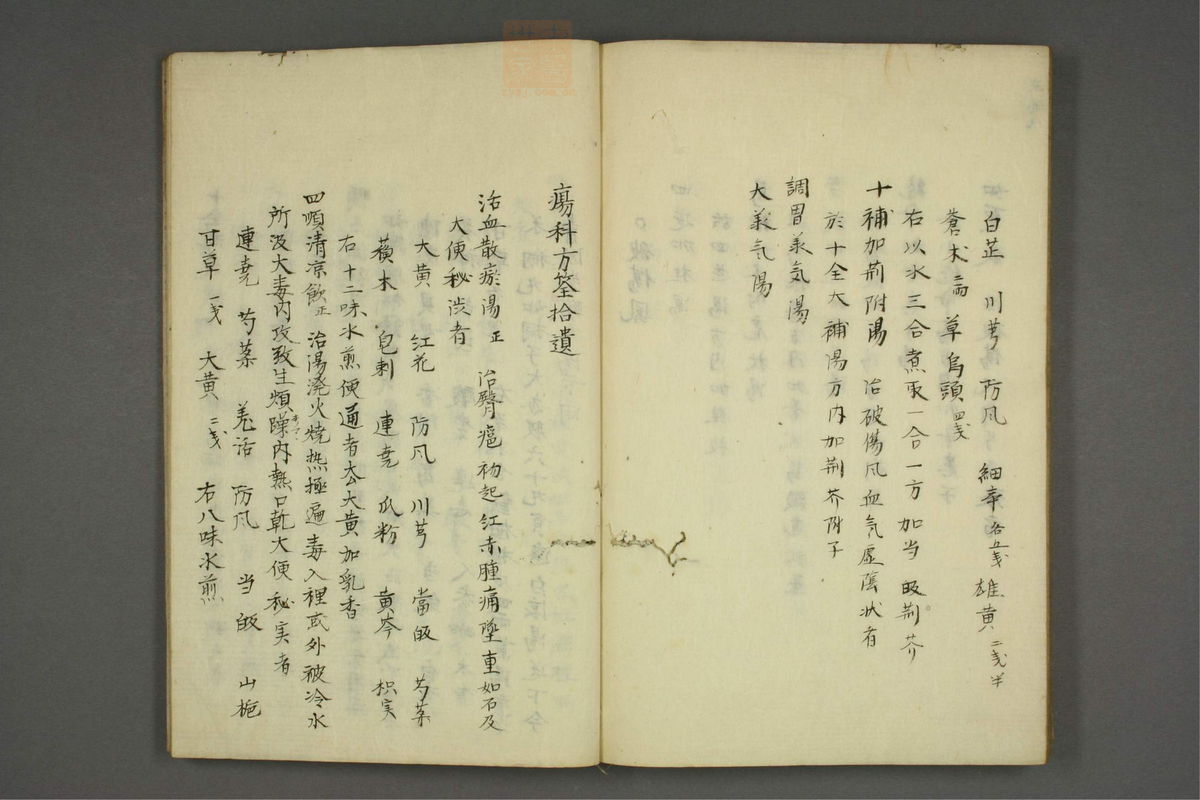 白芷 川芎 防风 細辛各五戔 雄黄二戔半
蒼朮二両 草烏頭四戔
右以水三合煮取一合一方加当皈荆芥
十補加荆附湯 治破傷风血気虚陰状者
於十全大補湯方内加荆芥附子
調胃義気湯
大義気湯
瘍科方筌拾遺
活血散瘀湯正 治臀癰初起紅赤腫痛墜重如石及
大便秘渋者
大黄 紅花 防风 川芎 當皈 芍薬
蘓木 皂刺 連堯 瓜粉 黄芩 枳実
右十二味水煎便通者去大黄加乳香
四順清凉飲正 治湯溌火焼热極遍毒入裡或外被冷水
所汲大毒内攻致生煩躁内熱口乾大便秘実者
連堯 芍薬 羗活 防风 当皈 山梔
甘草一戔 大黄二戔 右八味水煎